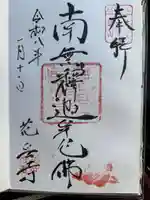 奉拝
南無釋迦牟尼佛
令和八年
一月十一日
花岳寺